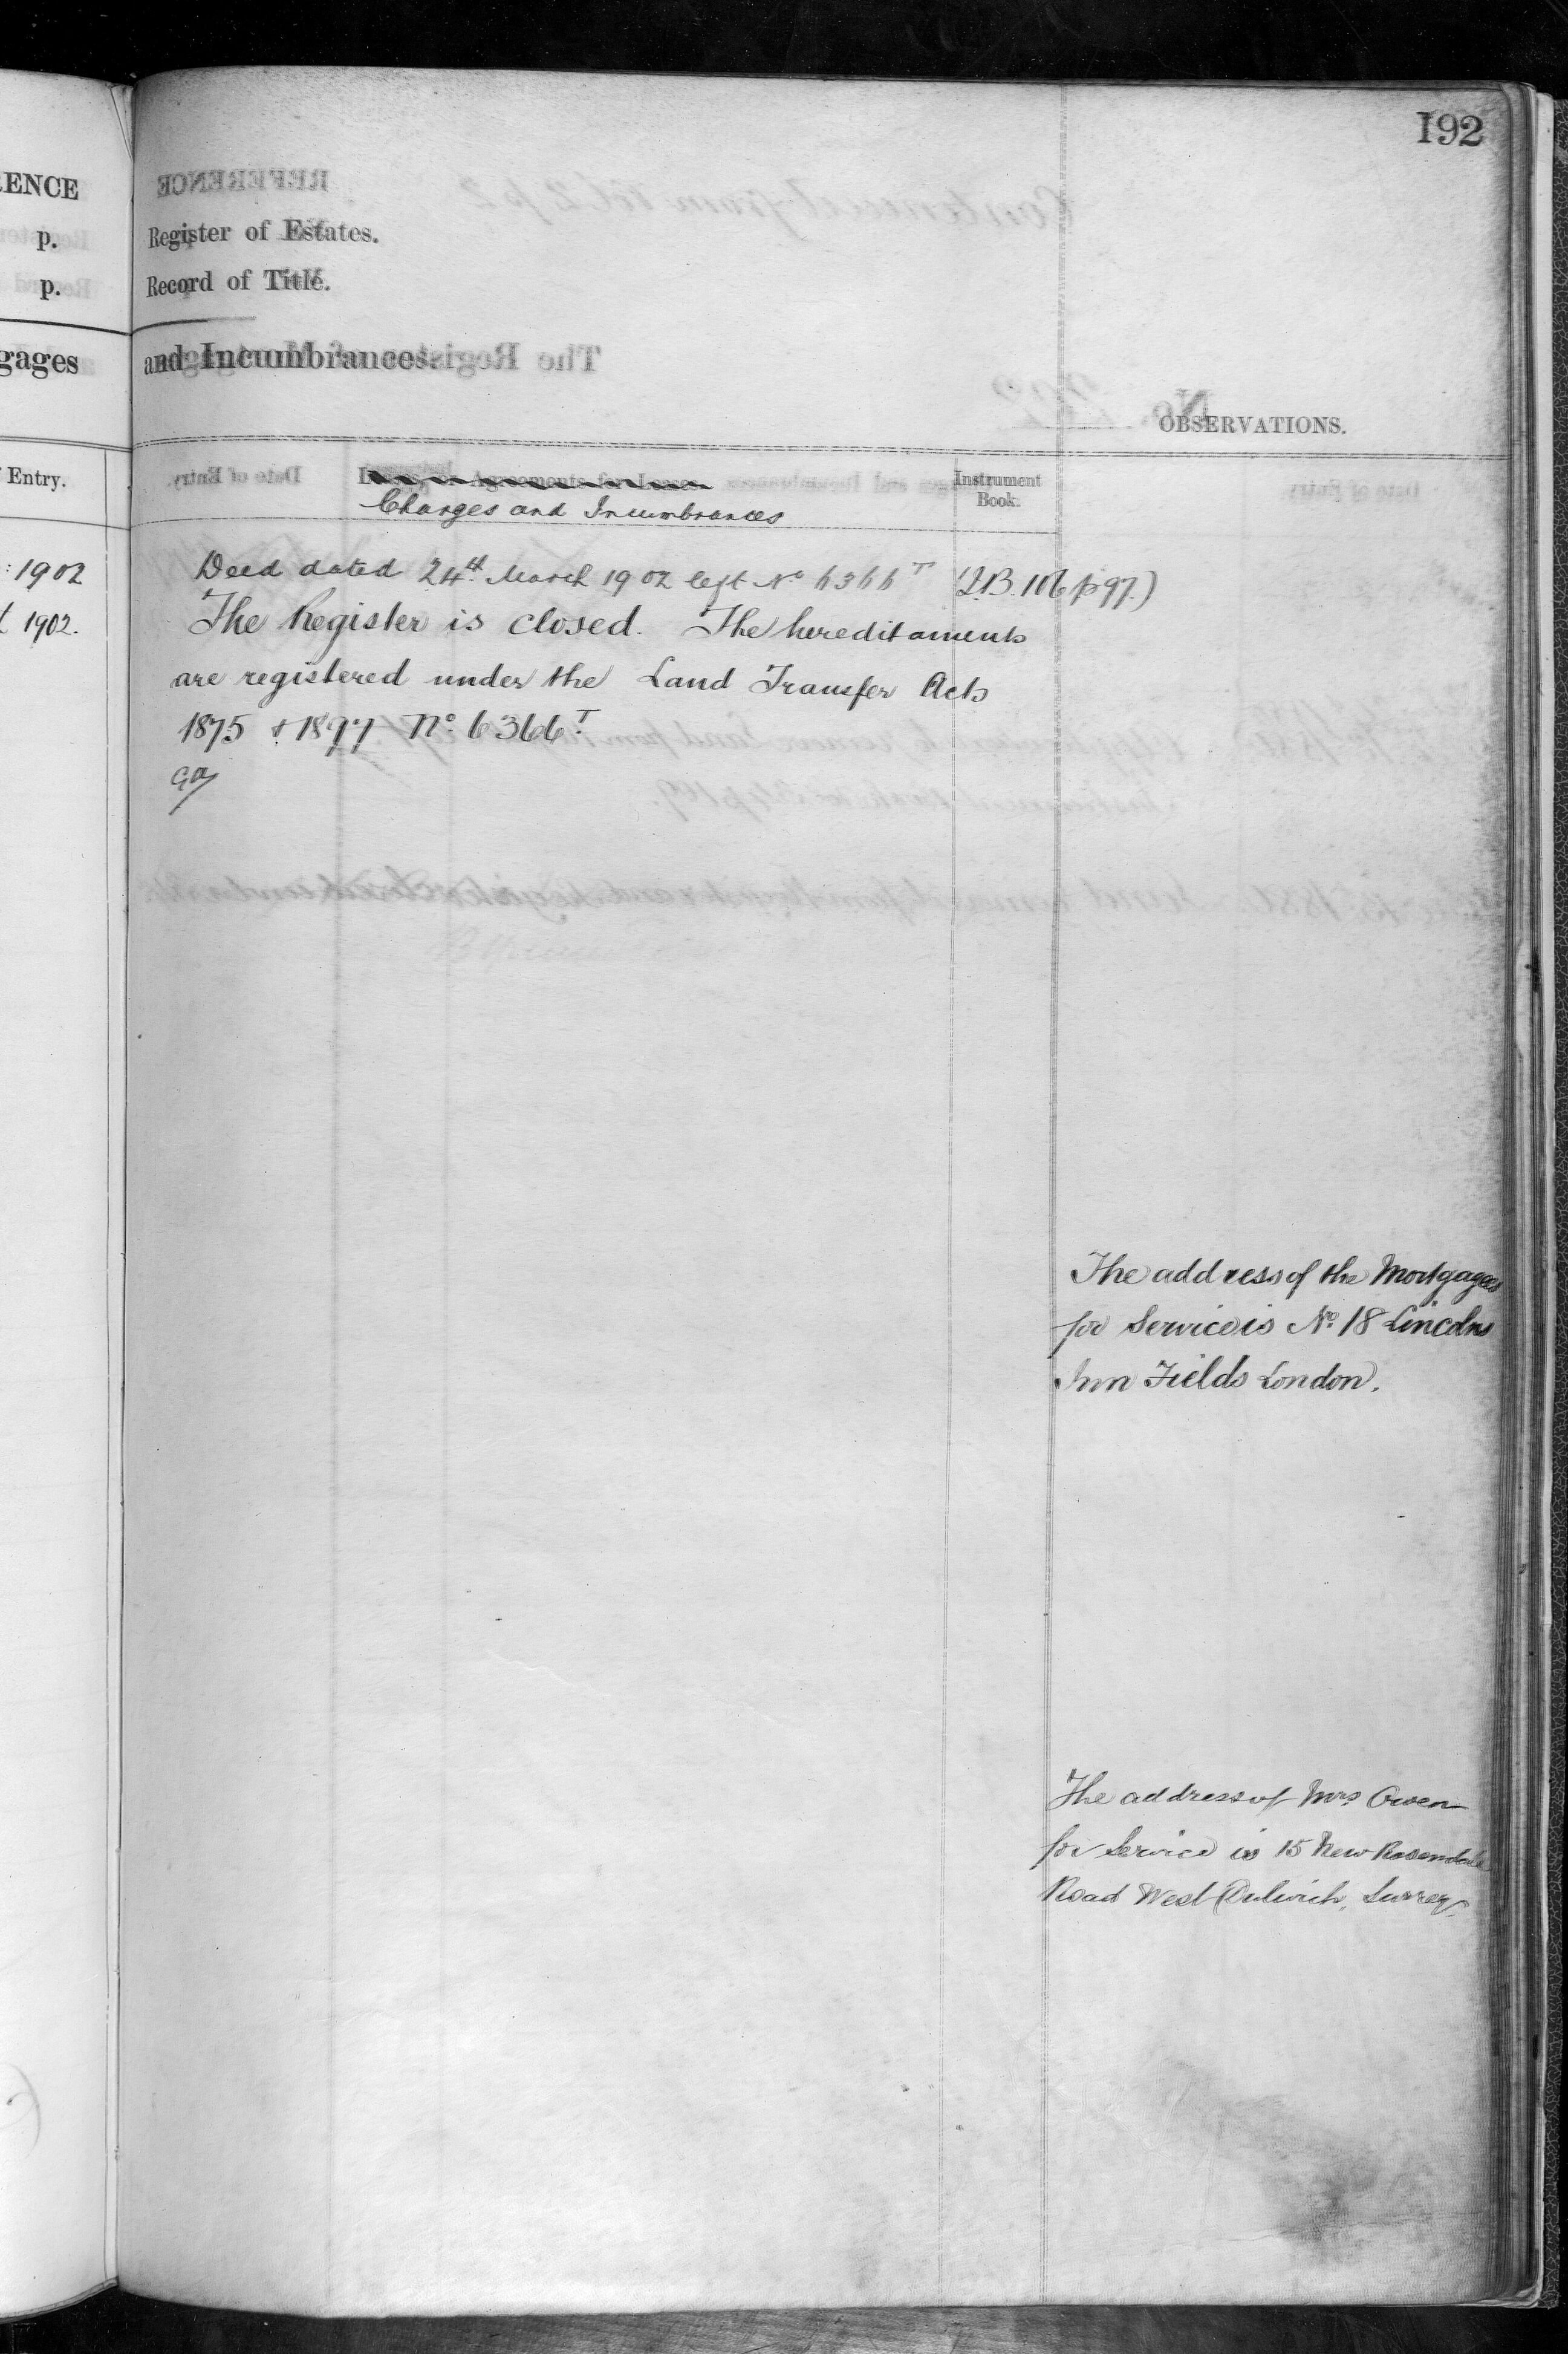 192
ENCE
p.
Register of Estates.
p.
Record of Title.
gages
and Incumbrances.
OBSERVATIONS.
Entry.
Leases, or Agreements for Leases.
Instrument
Book.
Charges and Incumbrances
1902
Deed dated 24th March 1902 left No 6366T (I.B. 106 p 97.)
1902.
The Register is closed. The hereditaments
are registered under the Land Transfer Acts
1875 & 1897 No. 6366T
The address of the Mortgagees
for Service is No. 18 Lincolns
Inn Fields London.
The address of Mrs Owen
for Service is 15 New Rosendale
Road West Dulwich, Surrey.